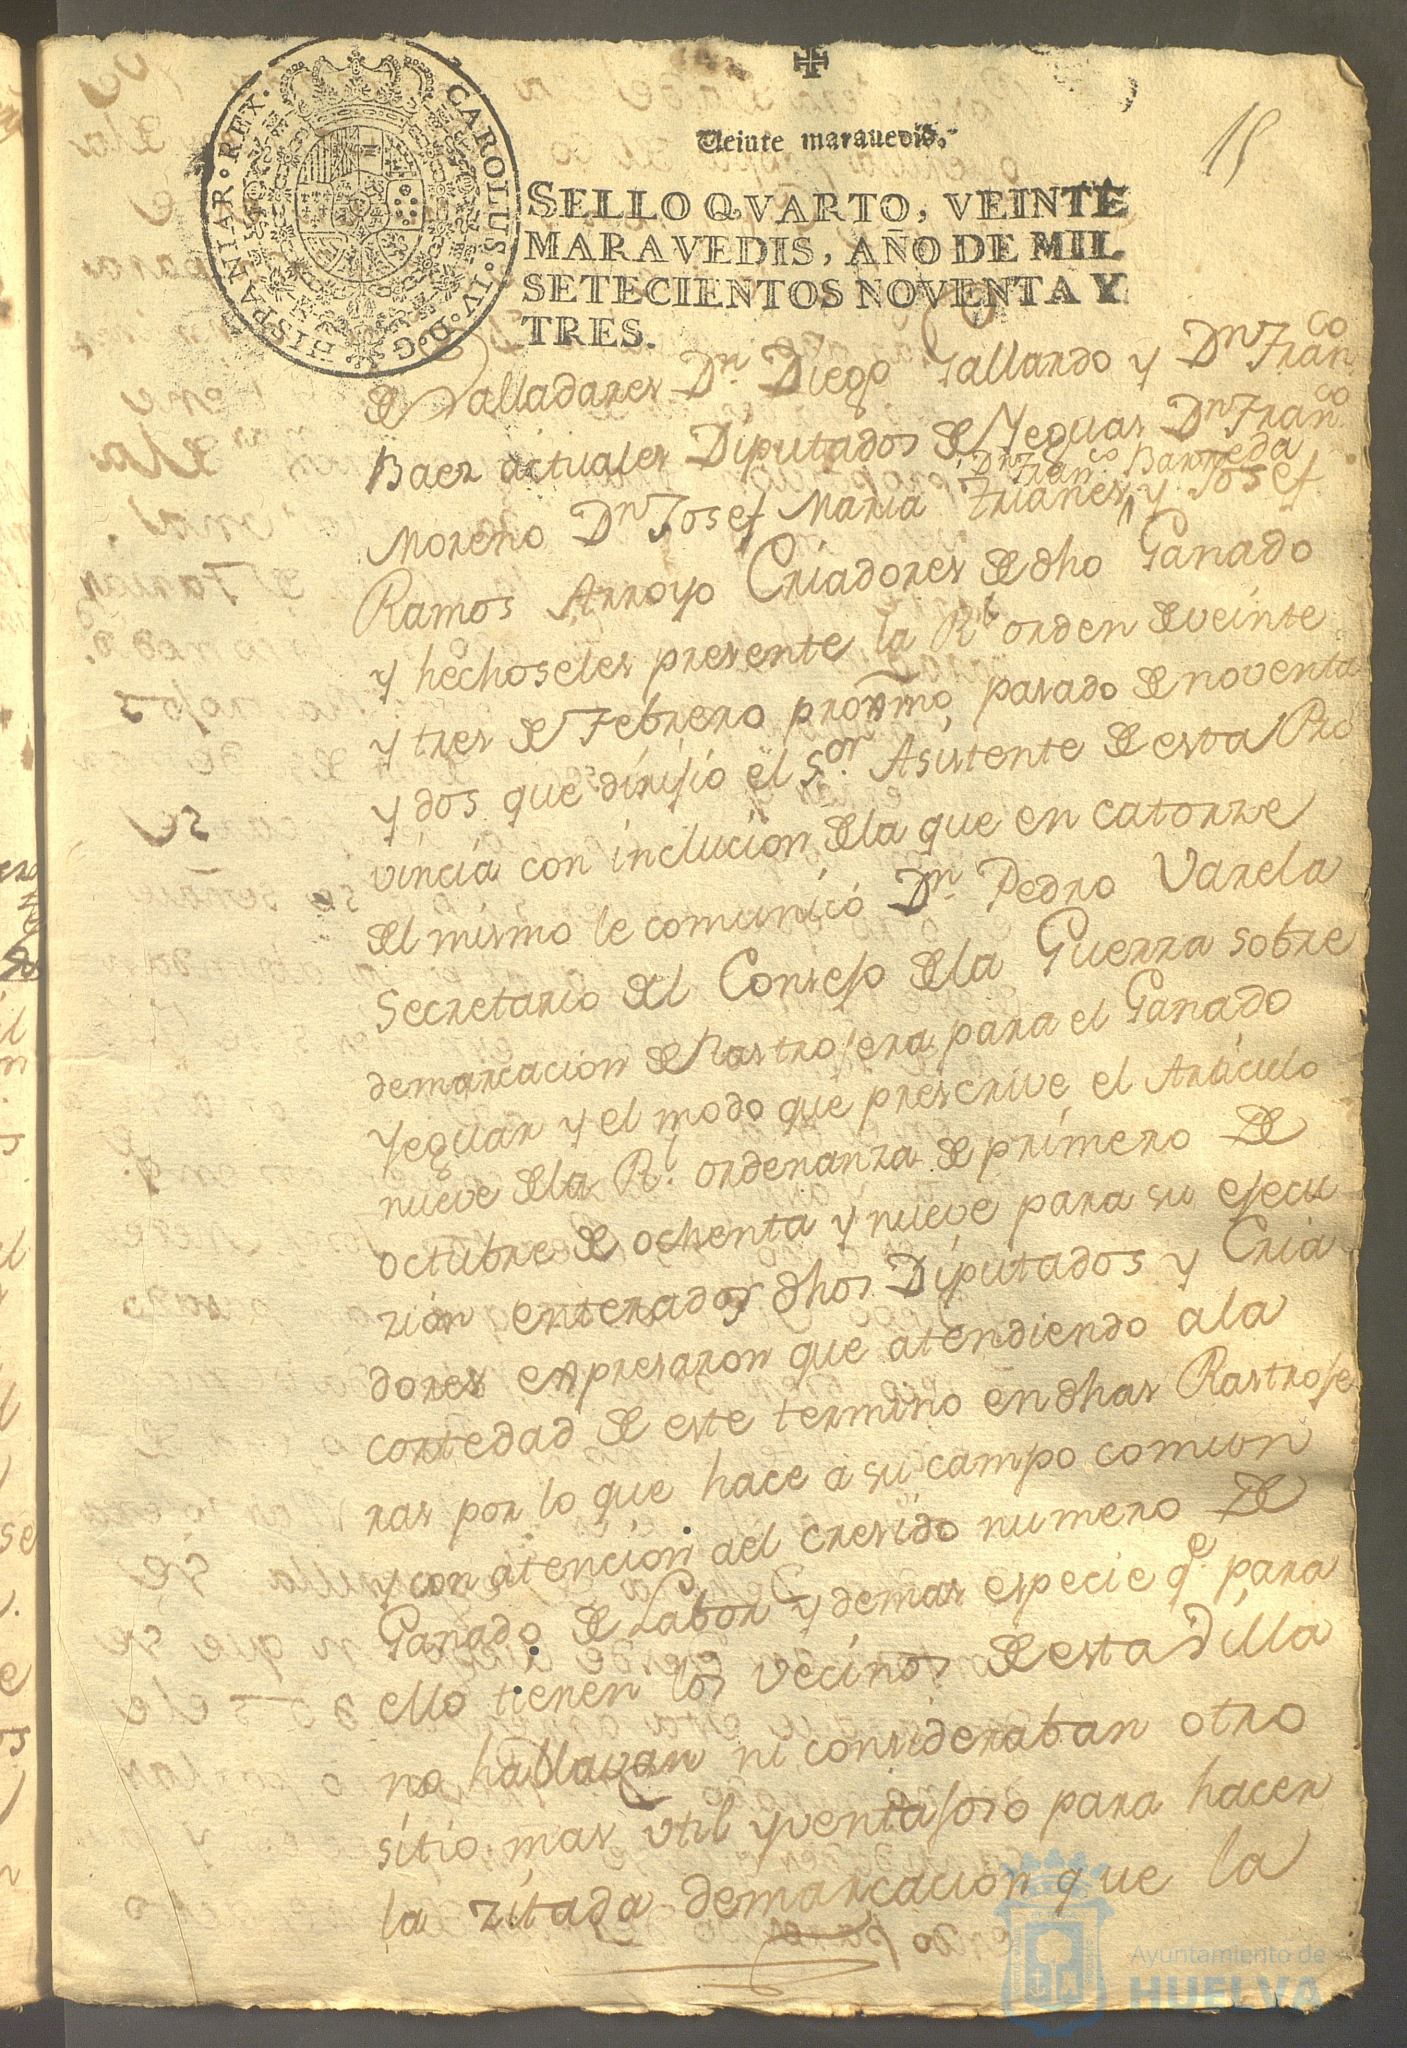 15
Veinte maravedis.
SELLO QVARTO, VEINTE
MARAVEDIS, AÑO DE MIL
SETECIENTOS NOVENTA Y
TRES.
CAROLUS·IV·D·G·HISPANIAR·REX·
de Valladares Dn. Diego Gallardo y Dn Franco
Baez actuales Diputados de Yeguas Dn Franco
Dn Franco Barreda
Moreno Dn Josef Maria Trianes y Josef
Ramos Arroyo Criadores de dho Ganado
y hechoseles presente la Rl orden de veinte
y tres de Febrero proxmo pasado de noventa
y dos que dirijio el Sor Asistente de esta Pro
vincia con inclucion de la que en catorze
del mismo le comunicó Dn. Pedro Varela
Secretario del Consejo de la Guerra sobre
demarcacion de Rastrojera para el Ganado
Yeguar y el modo que prescrive el Articulo
nueve de la Rl. ordenanza de primero de
octubre de ochenta y nueve para su ejecu
zion enterados dhos Diputados y Cria
dores expresaron que atendiendo a la
cortedad de este termino en dhas Rastroje
ras por lo que hace a su campo comun
y con atencion ael cresido numero de
Ganado de Labor y demas especie qe. para
ello tienen los vecinos de esta Villa
no hallavan ni consideraban otro
sitio mas util y ventajoso para hacer
la zitada demarcacion que la
Ayuntamiento de
HUELVA